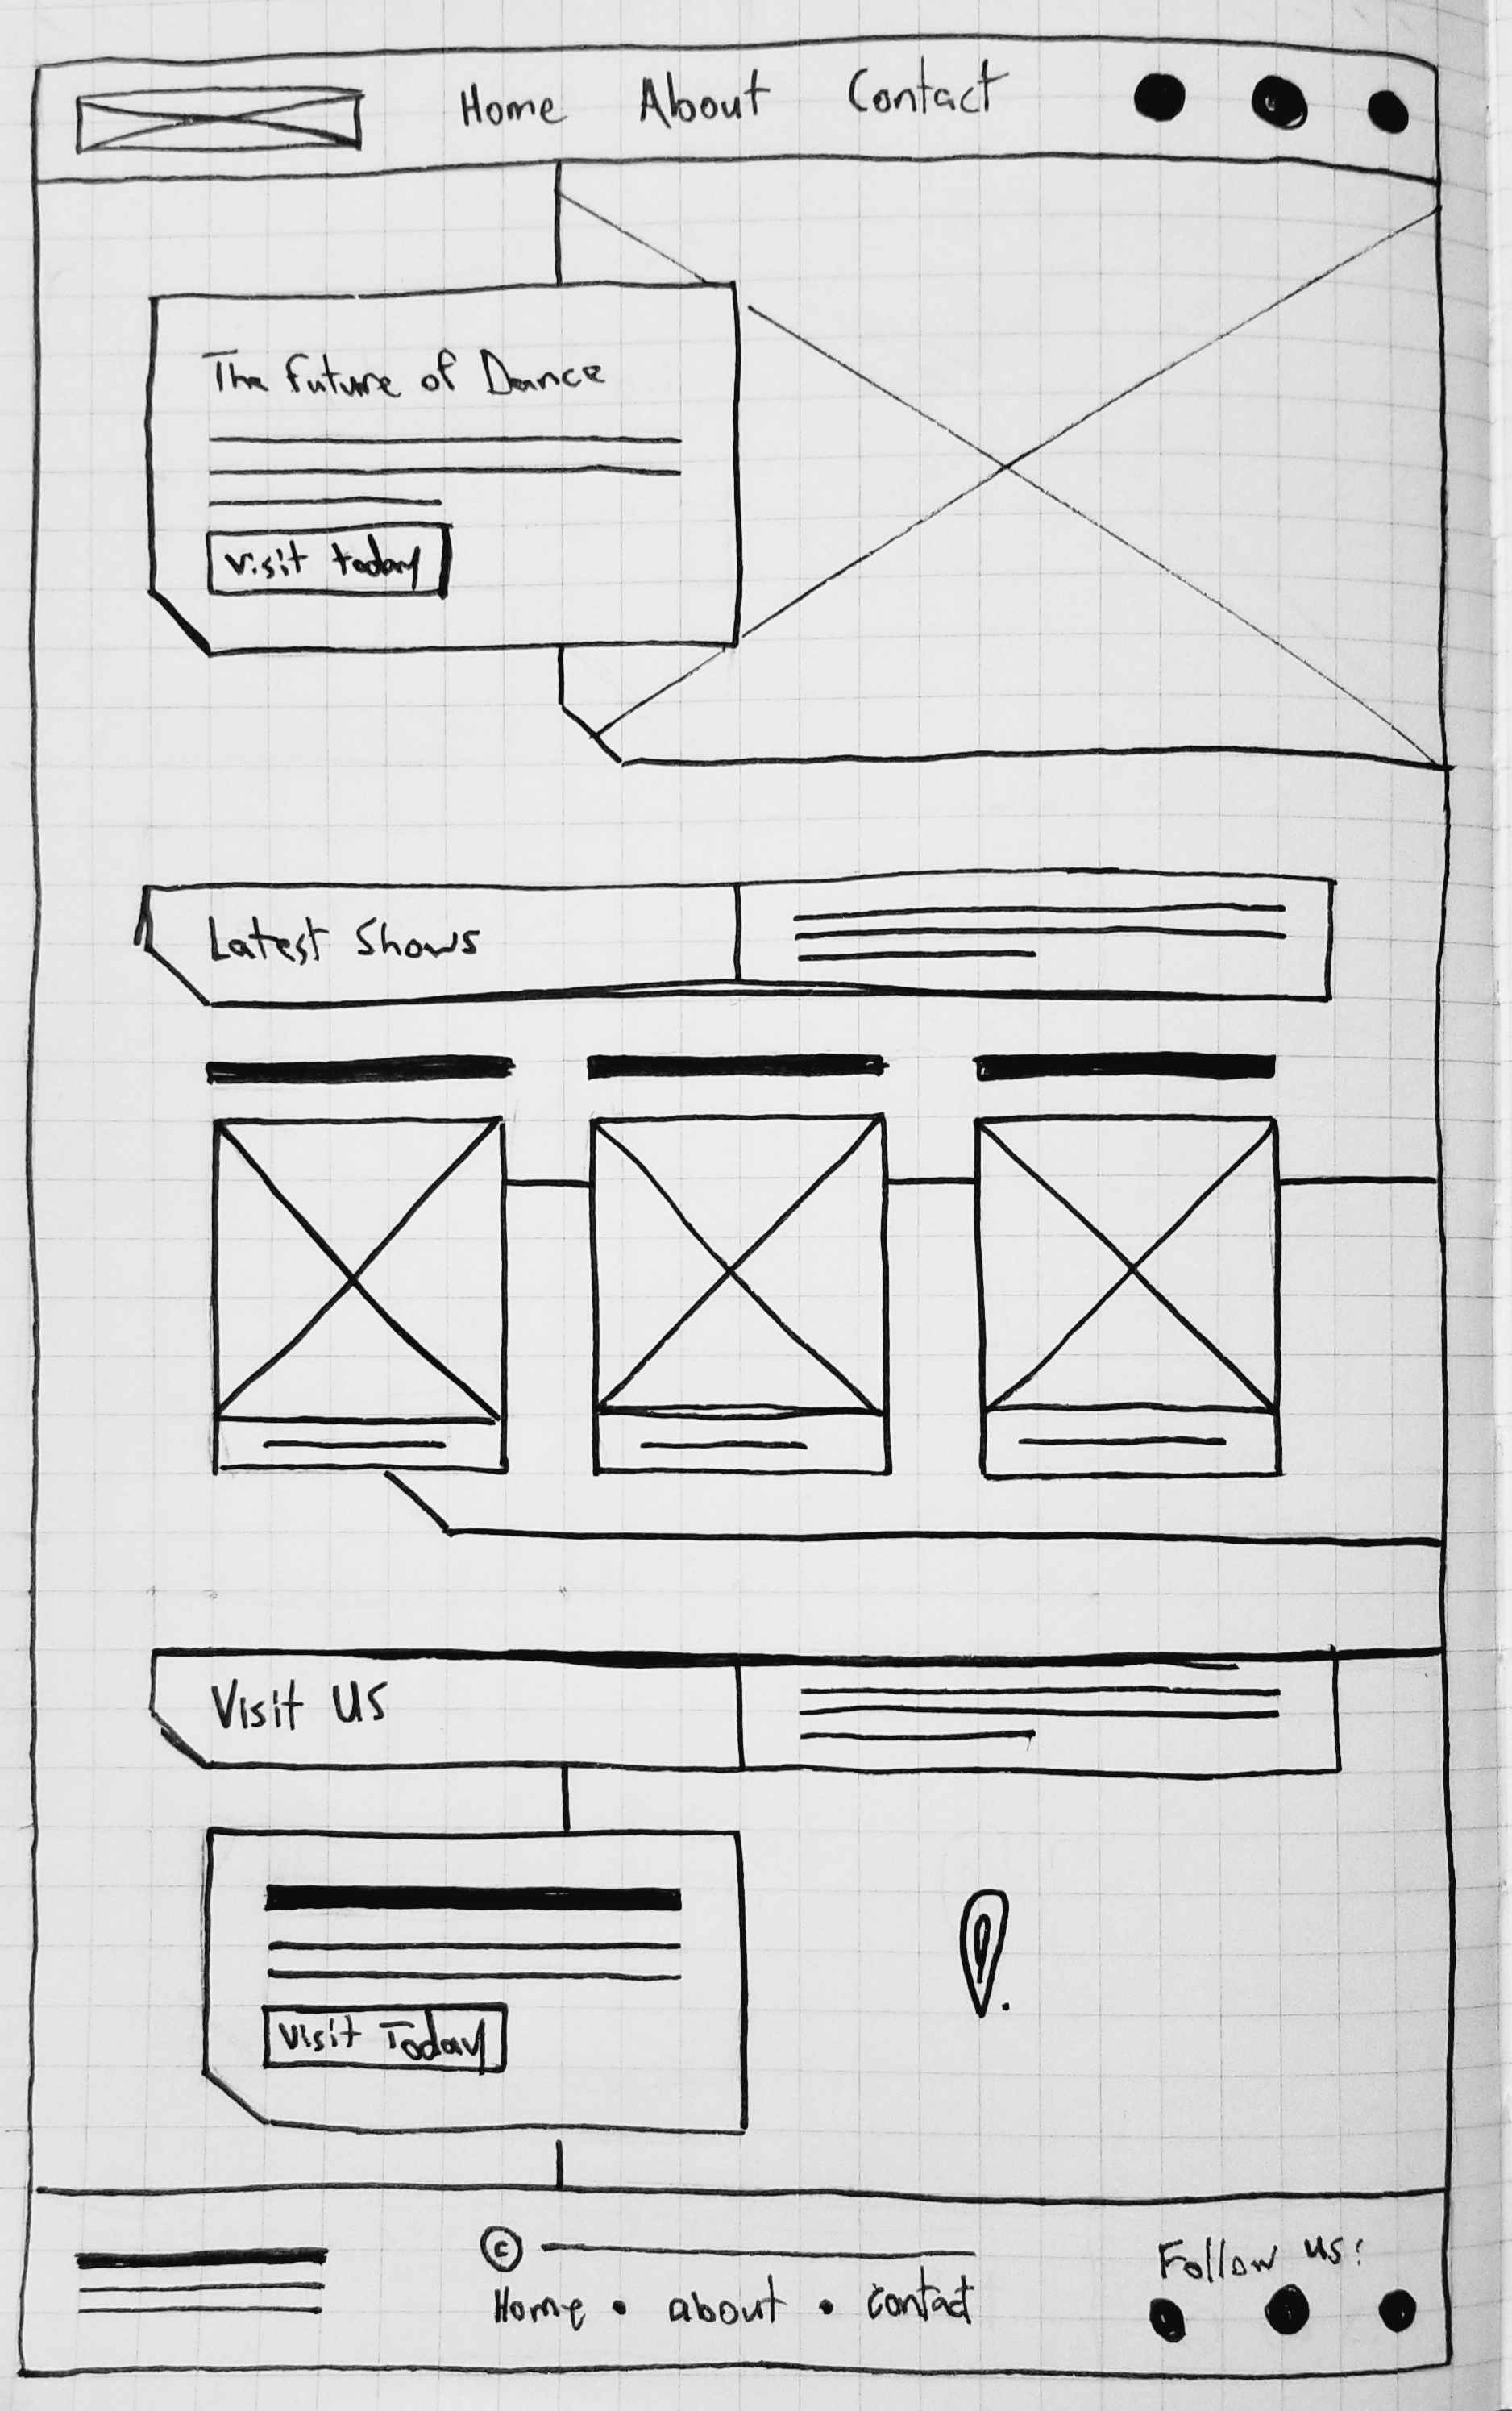 Home About Contact
The Future of Dance
Visit today
Latest Shows
Visit US
Visit Today
©
Home • about • contact
Follow us: